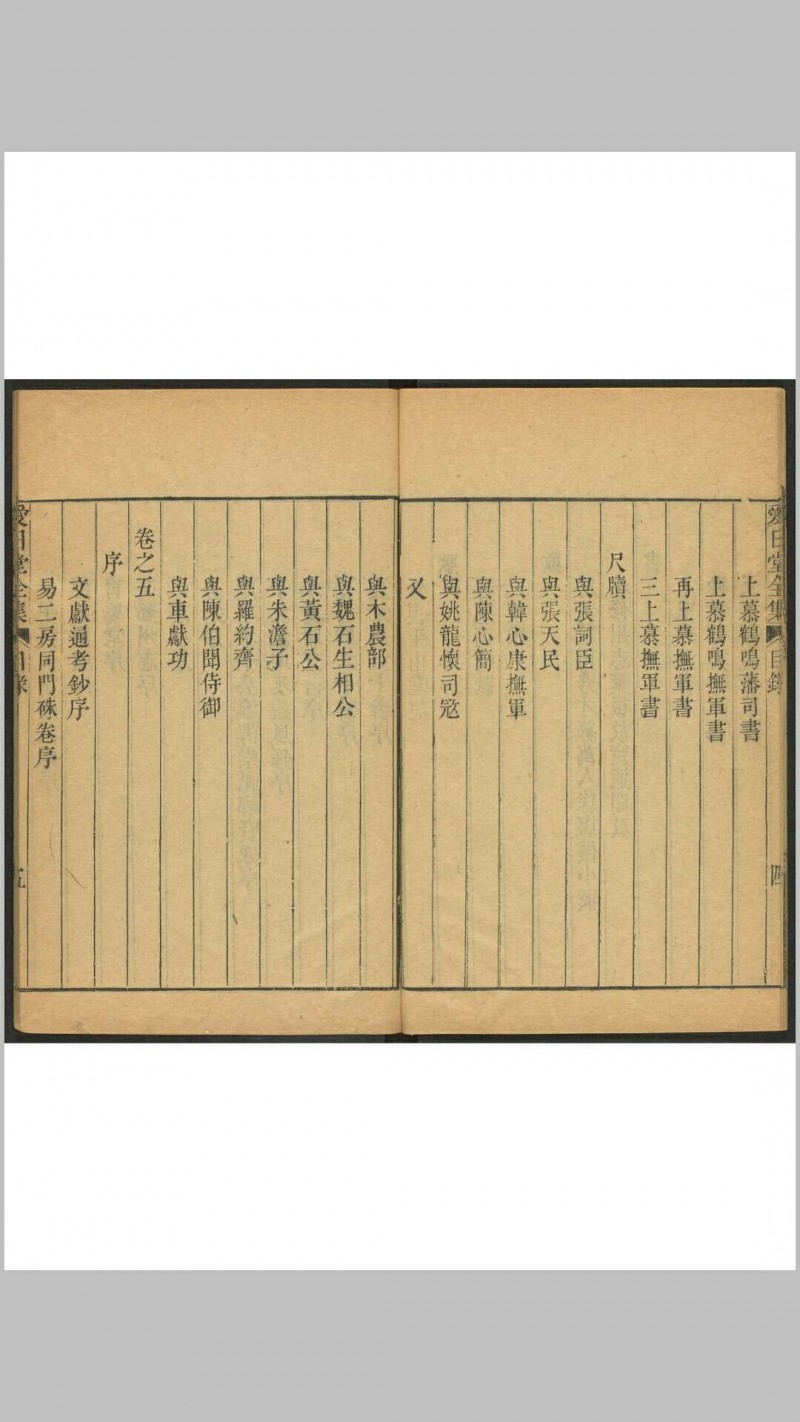 愛日堂全集 目錄 四
上慕鶴鳴藩司書
上慕鶴鳴撫軍書
再上慕撫軍書
三上慕撫軍書
尺牘
與張詞臣
與張天民
與韓心康撫軍
與陳心簡
與姚龍懷司宼
又
與木農部
與魏石生相公
與黃石公
與朱澹子
與羅約齊
與陳伯聞侍御
與車獻功
卷之五
序
文獻通考鈔序
易二房同門硃卷序
愛日堂全集 目錄 五